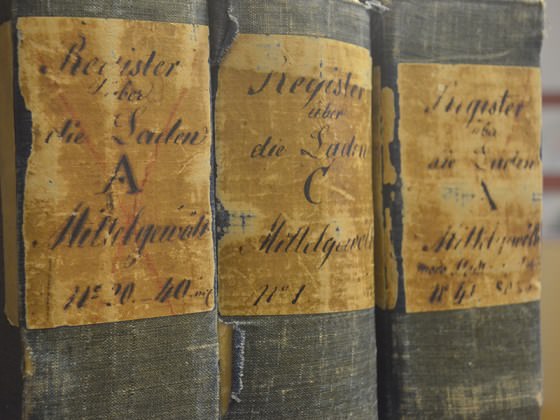 Register
über
die Laden
A
Mittelgewölb
Nº 20. - 40. incl
Register
über
die Laden
C
Mittelgewölb
Nº 1.
Register
über
die Laden
A
Mittelgewölb
Nº 41